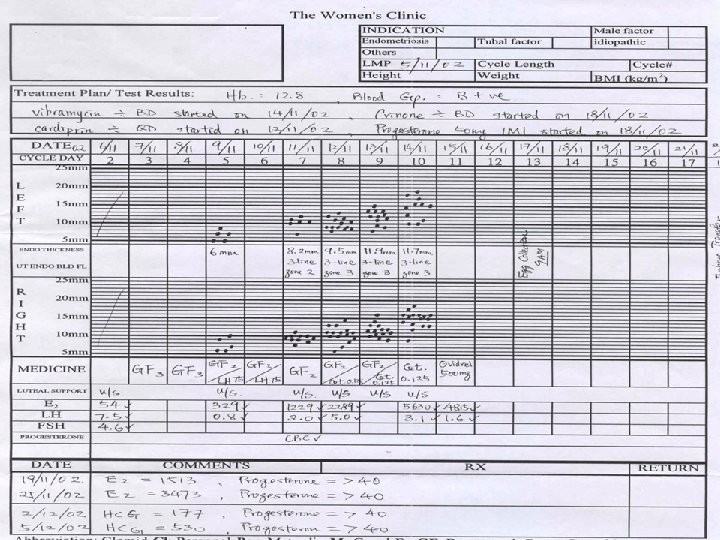 The Women's Clinic
INDICATION Male factor
Endometriosis Tubal factor idiopathic
Others
LMP 5/11/02 Cycle Length Cycle#
Height Weight BMI (kg/m²)
Treatment Plan/ Test Results: Hb. = 12.8 , Blood Grp. = B +ve
vibramycin BD started on 14/11/02 , Crinone BD started on 18/11/02
cardiprin started on 12/11/02 , Progesterone 50mg IMI started on 18/11/02
DATE 6/11 7/11 8/11 9/11 10/11 11/11 12/11 13/11 14/11 15/11 16/11 17/11 18/11 19/11 20/11 21/11
CYCLE DAY 2 3 4 5 6 7 8 9 10 11 12 13 14 15 16 17
25mm
L 20mm
E 15mm
F 10mm
T 5mm
ENDO THICKNESS 6mm 8.2mm 9.5mm 11.9mm 11.7mm
3-line 3-line 3-line 3-line
UT ENDO BLD FL zone 2 zone 3 zone 3 zone 3
Egg Collection 9AM
25mm
R 20mm
I 15mm
G 10mm
H
T 5mm
MEDICINE GF3 GF3 GF2 /LH75 GF2 /LH75 GF2 GF2 /Cet. 0.125 GF2 /Cet 0.125 Cet. 0.125 Ovidrel
LUTEAL SUPPORT u/s. u/s. u/s. u/s u/s u/s
E2 329 1229 2289 5630 4835
LH 7.5 0.8 2.0 5.0 3.1 1.6
FSH 4.6
PROGESTERONE CBC
DATE COMMENTS RX RETURN
19/11/02 E2 = 1513 , Progesterone = >40
25/11/02 E2 = 3473 , Progesterone = >40
2/12/02 HCG = 177 , Progesterone = >40
5/12/02 HCG = 530 , Progesteron = >40